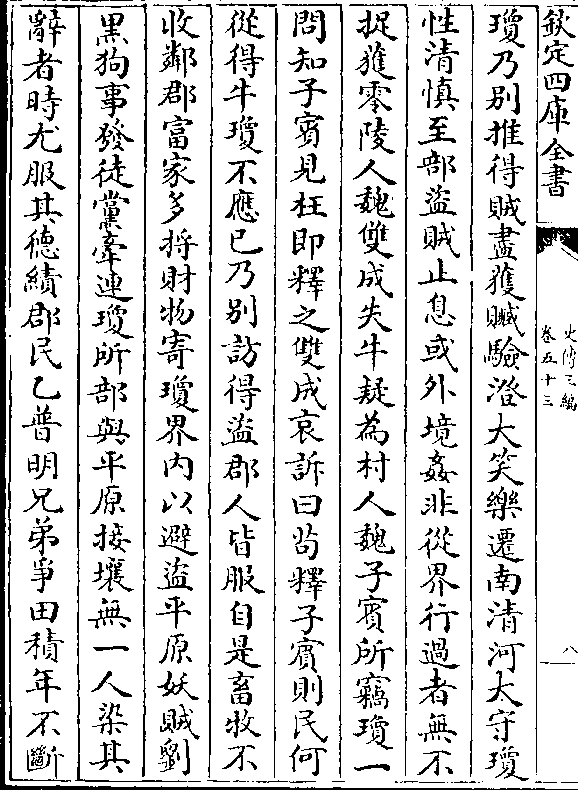 欽定四庫全書
史傳三編
卷五十三
八
瓊乃別推得賊盡獲贓驗澄大笑樂遷南清河太守瓊
性清慎至部盜賊止息或外境姦非從界行過者無不
捉獲零陵人魏雙成失牛疑為村人魏子賓所竊瓊一
問知子賓見枉即釋之雙成哀訴曰茍釋子賓則民何
從得牛瓊不應已乃別訪得盜郡人皆服自是畜牧不
收鄰郡富家多捋財物寄瓊界内以避盜平原妖賊劉
黑狗事發徒黨牽連瓊所部與平原接壤無一人染其
辭者時尤服其德績郡民乙普明兄弟爭田積年不斷